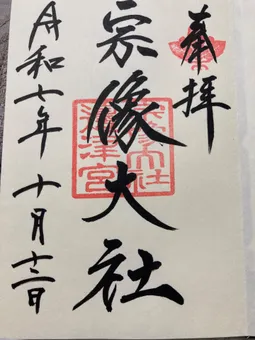 奉拝
宗像大社
宗像大社
辺津宮
令和七年十月十二日